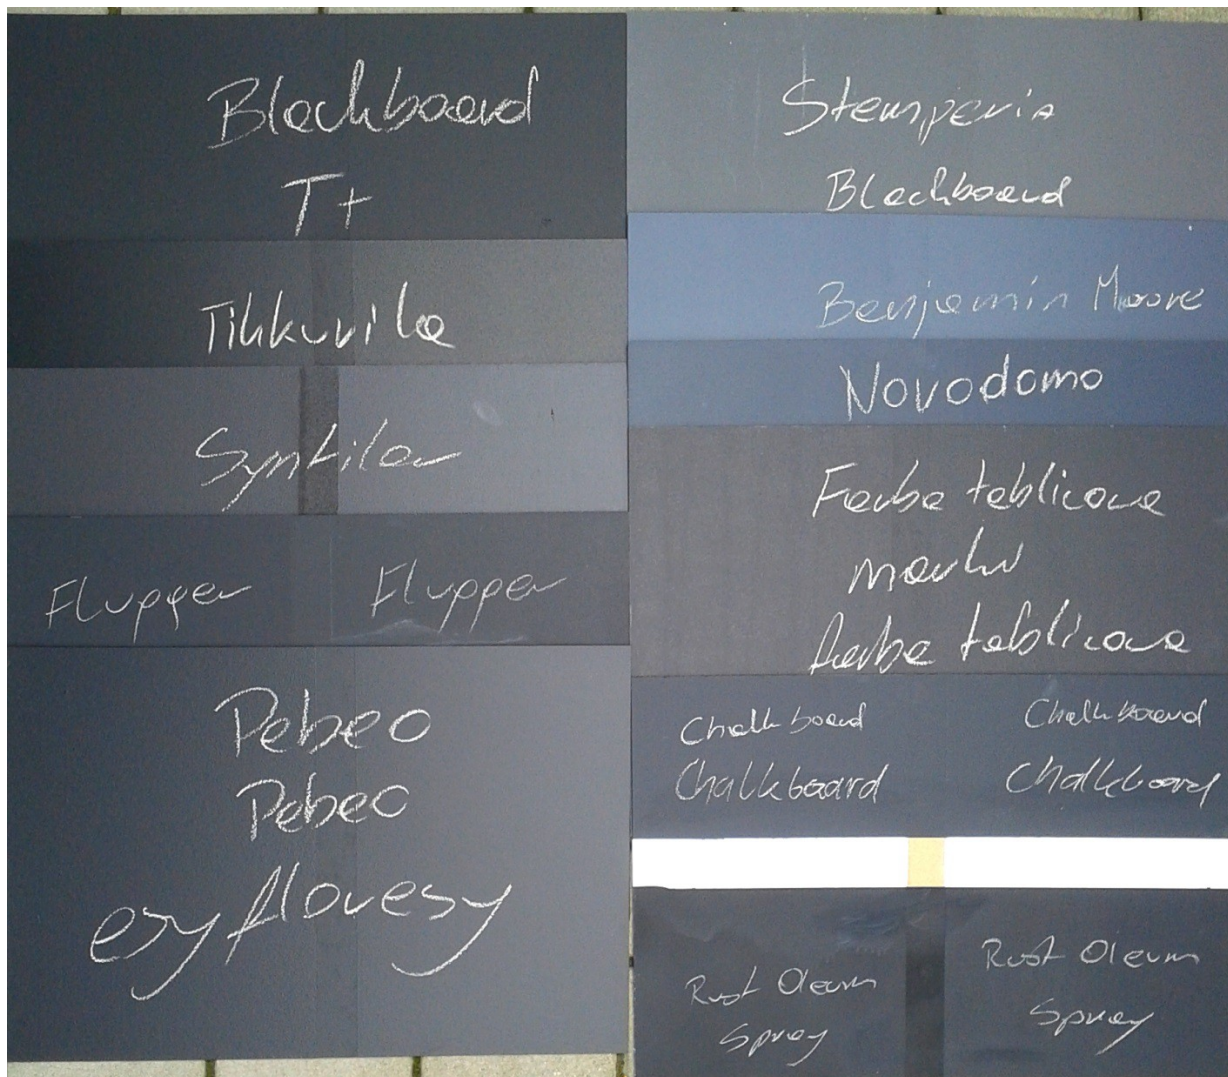 Blackboard
T+
Tikkurila
Syntilor
Flugger Flugger
Pebeo
Pebeo
esy flovesy
Stamperia
Blackboard
Benjamin Moore
Novodomo
Farba tablicowa
marki
farba tablicowa
Chalkboard Chalkboard
Chalkboard Chalkboard
Rust Oleum Rust Oleum
Spray Spray